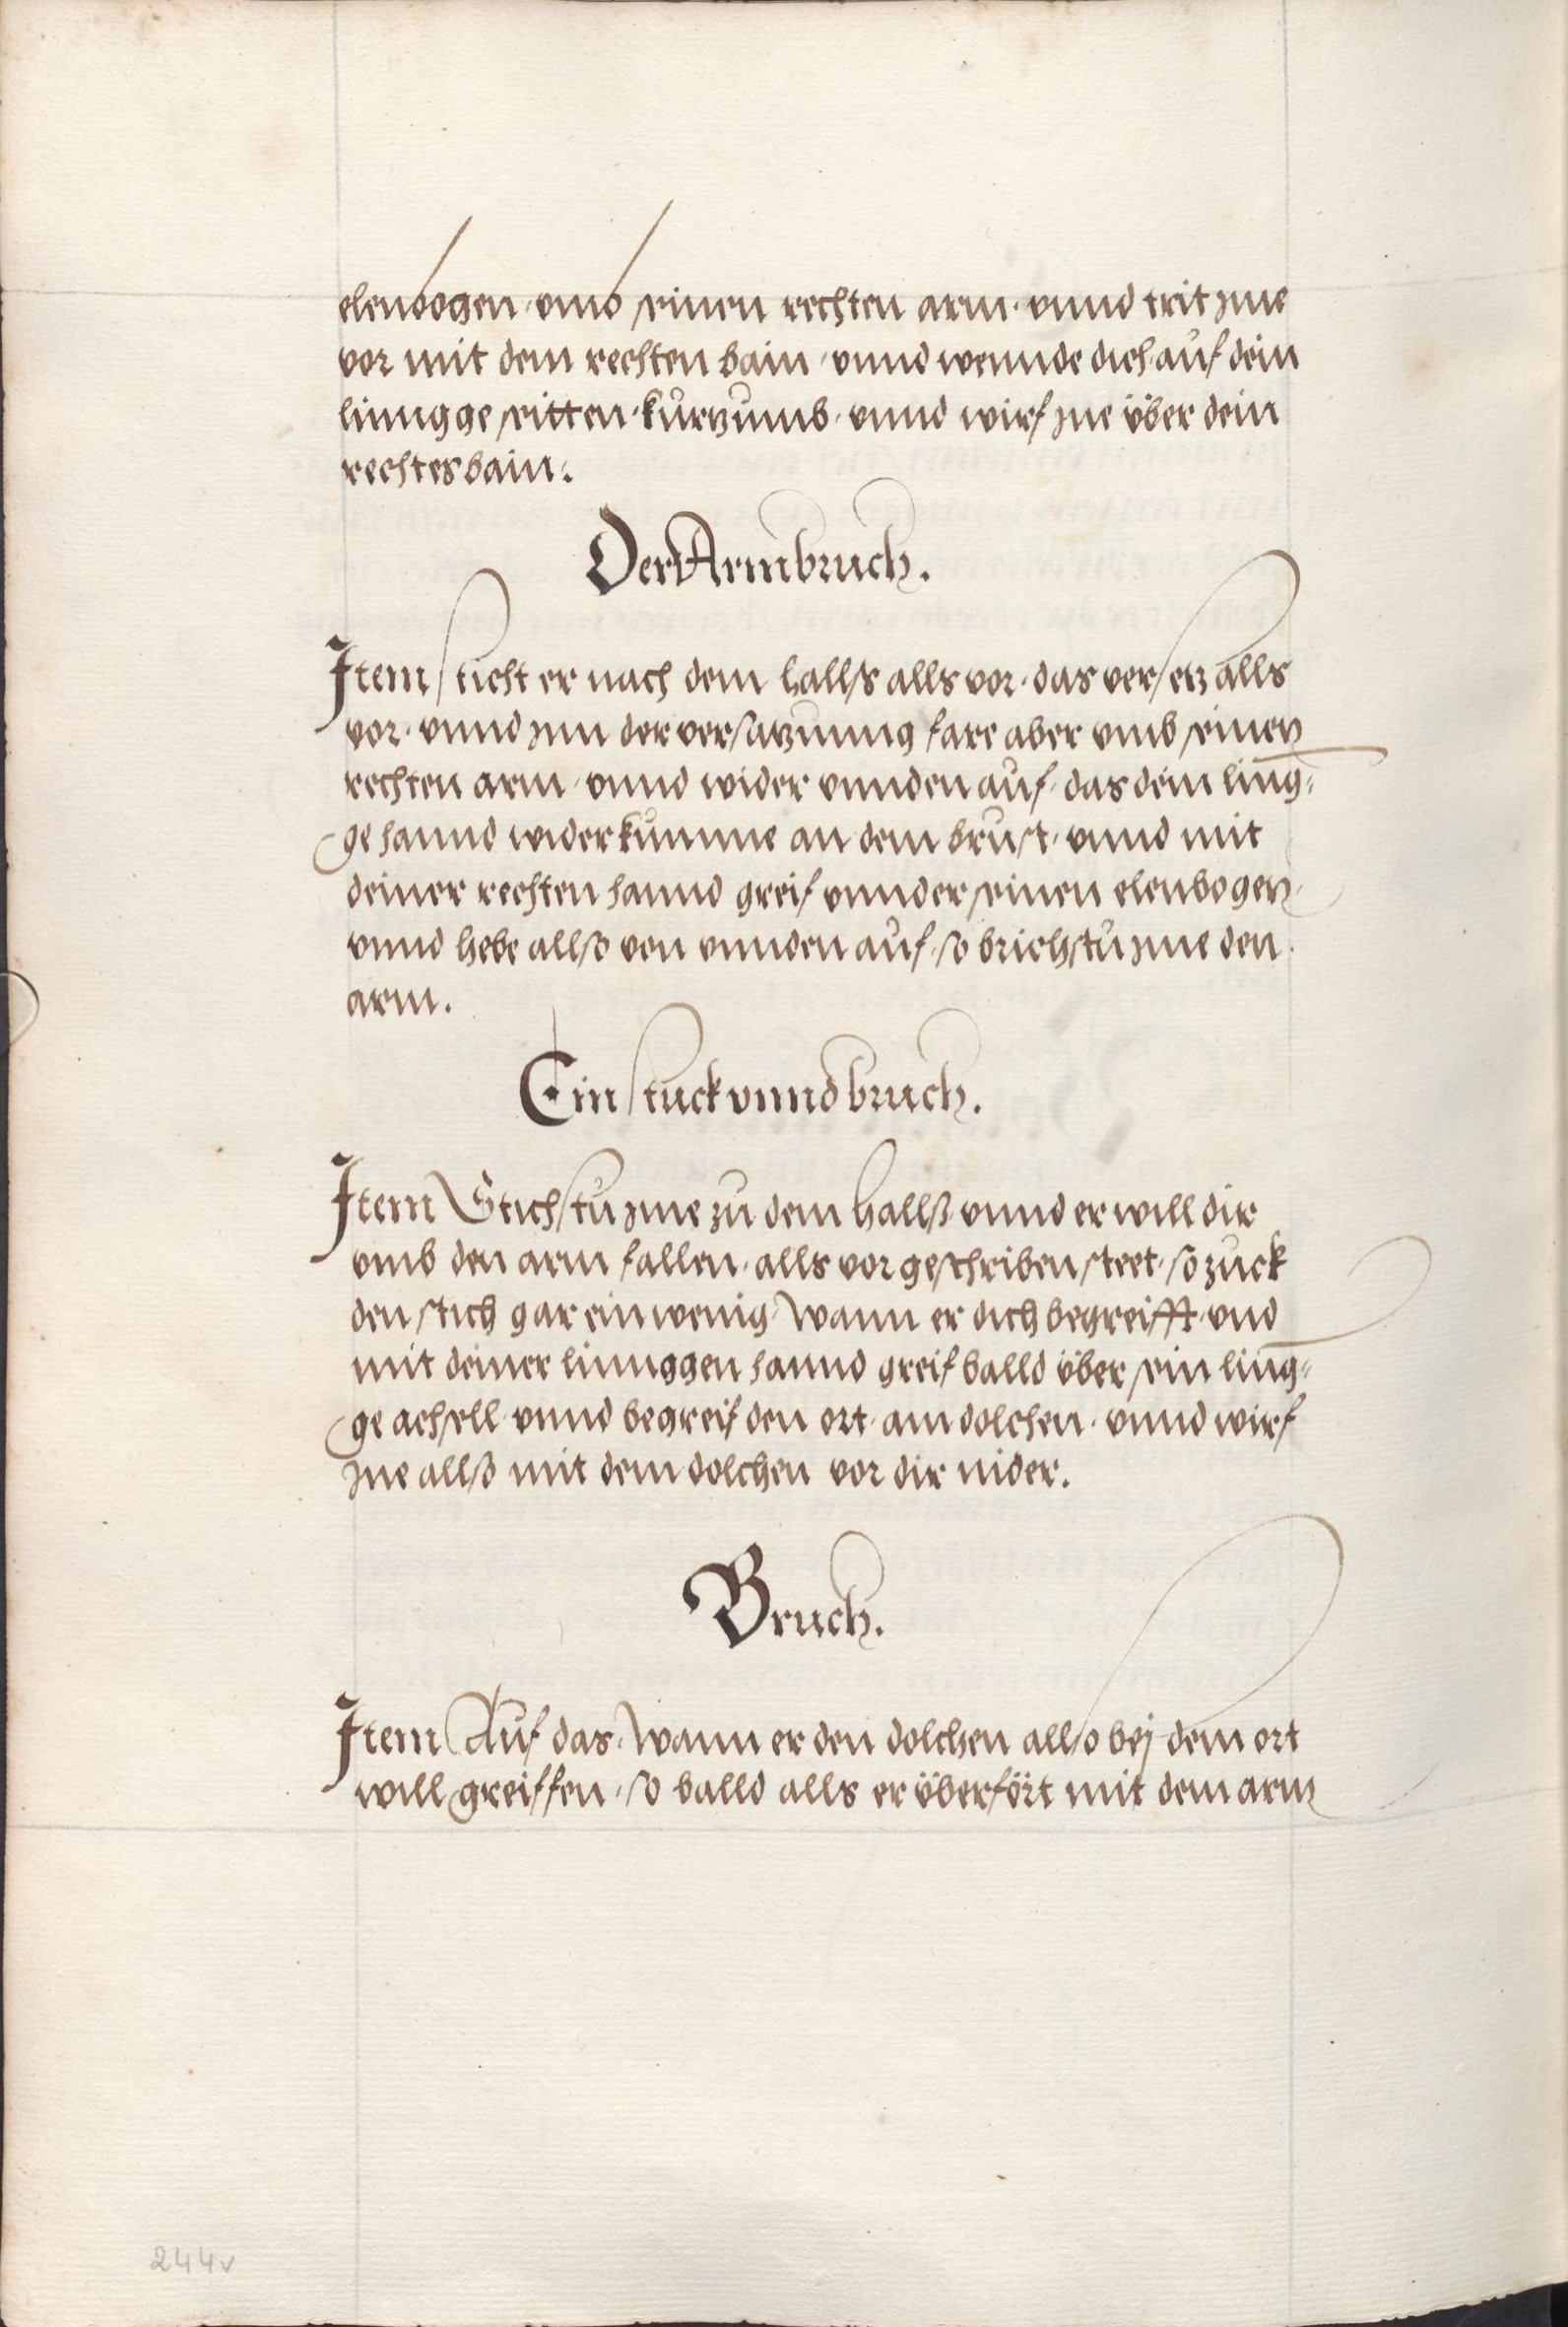 elenbogen · vmb seinen rechten arm · vnnd trit jne
vor mit dem rechten bain · vnnd wennde dich auf dein
linngge seitten · kurtzumb · vnnd wirf jne über dein
rechtes bain :
Der Armbruch .
Item sticht er nach dem halls alls vor · das versetz alls
vor · vnnd jnn der versatzunng fare aber vmb seinen
rechten arm · vnnd wider vnnden auf · das dein ling=
ge hannd wider kumme an dem brust · vnnd mit
deiner rechten hannd greif vnnder seinen elenbogen ·
vnnd hebe allso von vnnden auf · so brichstu jme den
arm .
Ein stuck vnnd bruch .
Item Stichstu jme zu dem hallß vnnd er will dir
vmb den arm fallen · alls vor geschriben steet · so zuck
den stich gar ein wenig · Wann er dich begreifft · vnd
mit deiner linnggen hannd greif balld über sein ling=
ge achsell · vnnd begreif den ort · am dolchen · vnnd wirf
jne allso mit dem dolchen vor dir nider .
Bruch .
Item Auf das · Wann er den dolchen allso bej dem ort
will greiffen · so balld alls er überfört mit dem arm
244v